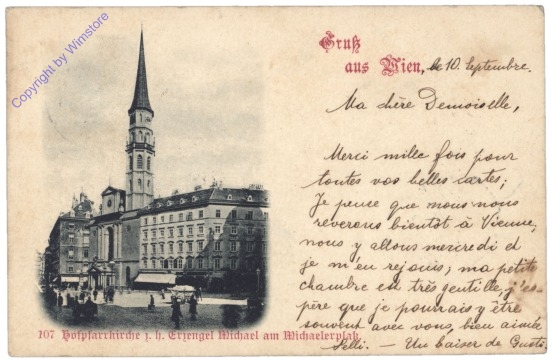 Copyright by Wimstore
Gruß
aus Wien, le 10. Septembre.
Ma chère Demoiselle,
Merci mille fois pour
toutes vos belles cartes;
Je pense que nous nous
reverons bientôt à Vienne,
nous y allons mercredi et
je m'en rejouis; ma petite
chambre est très gentille, j'es-
père que je pourrais y être
souvent avec vous, bien aimée
Selli. — Un baiser de Gusti
107 Hofpfarrkirche z. h. Erzengel Michael am Michaelerplatz